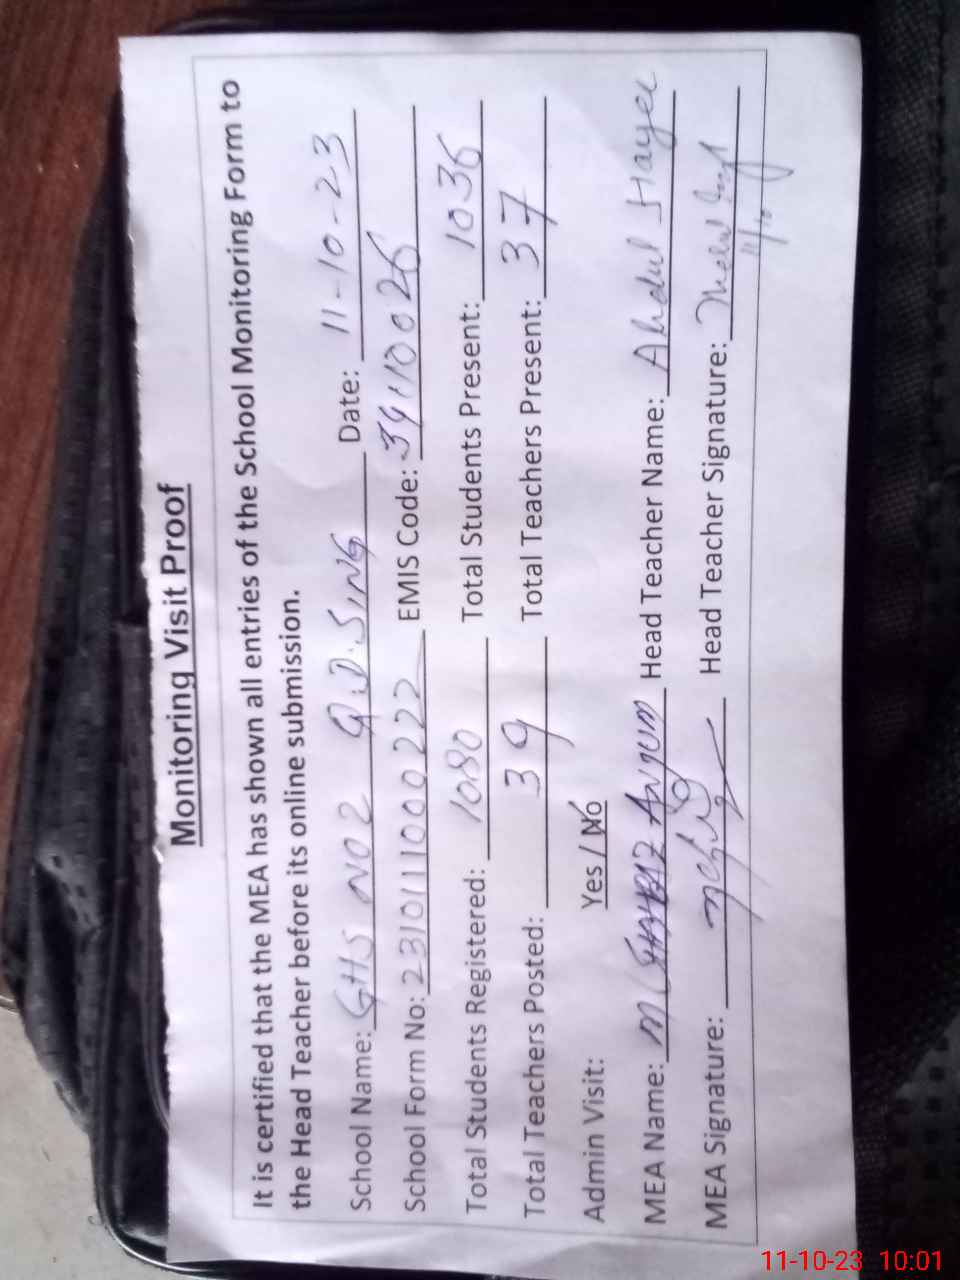 Monitoring Visit Proof
It is certified that the MEA has shown all entries of the School Monitoring Form to
the Head Teacher before its online submission.
School Name: GHS NO2 Date: 11-10-23
School Form No: 2310111000222 EMIS Code: 39110026
Total Students Registered: 1080 Total Students Present: 1036
Total Teachers Posted: 39 Total Teachers Present: 37
Admin Visit: Yes / No
MEA Name: M Anjum Head Teacher Name: Abdul
MEA Signature: Head Teacher Signature:
11-10-23 10:01